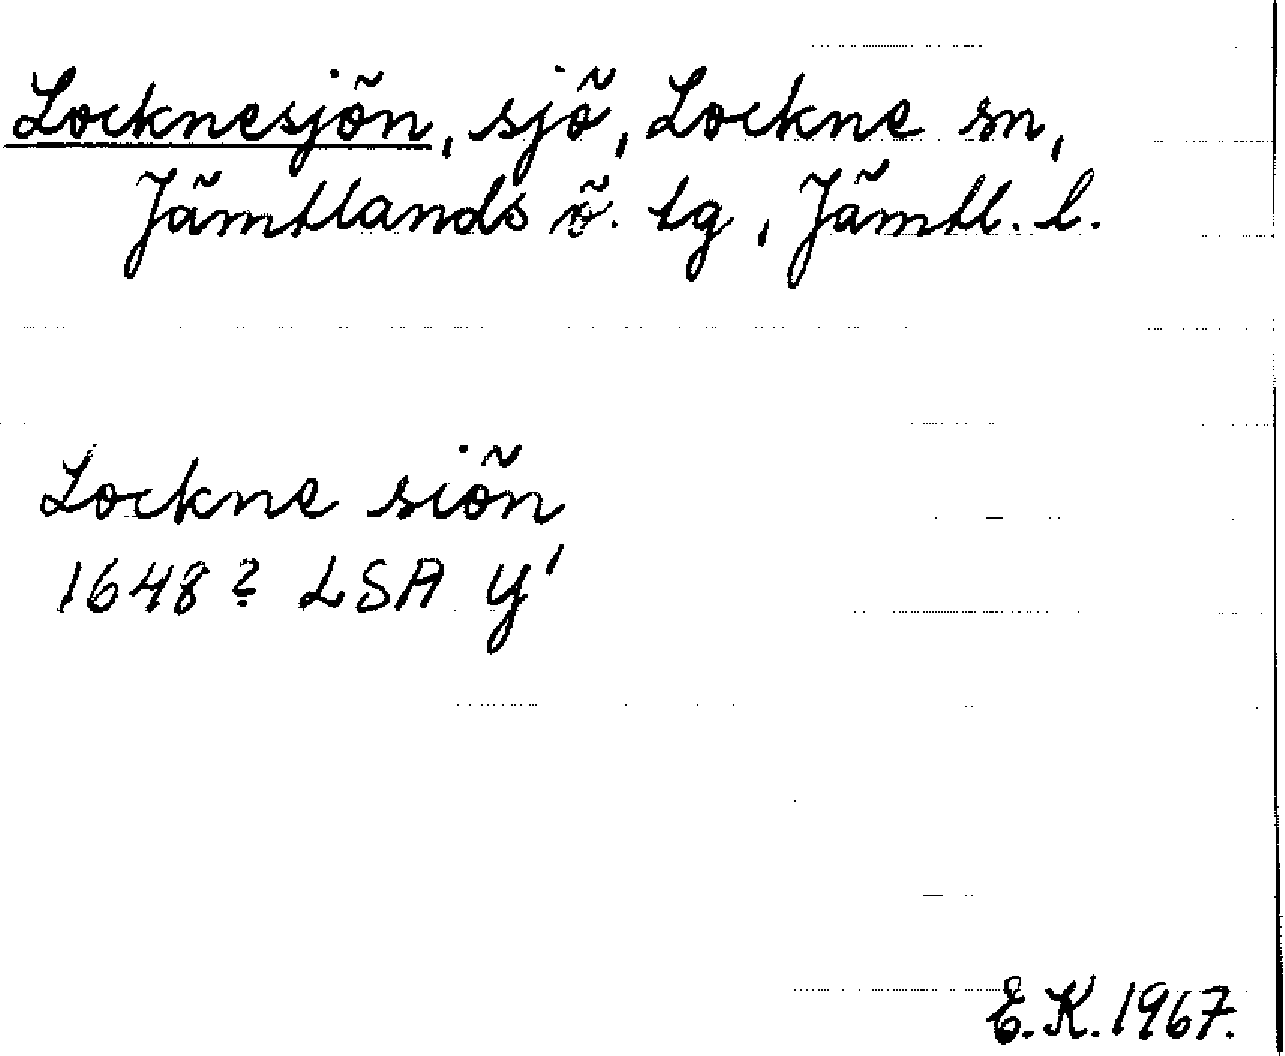 Locknesjön, sjö, Lockne sn,
Jämtlands ö. tg, Jämtl. l.
Lockne siön
1648? LSA Y'
E.K. 1967.